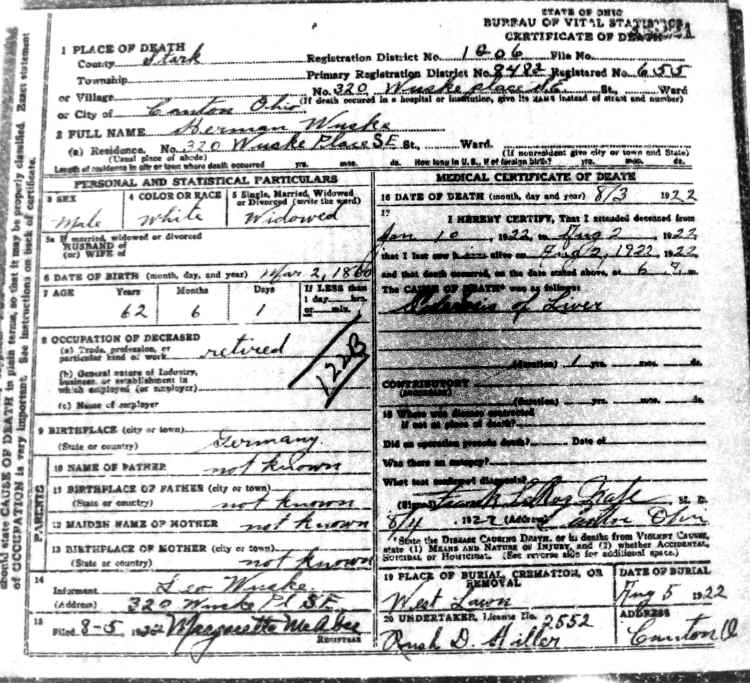 STATE OF OHIO
BUREAU OF VITAL STATISTICS
CERTIFICATE OF DEATH
1 PLACE OF DEATH
County Stark Registration District No. 1206 File No.
Township Primary Registration District No. 8482 Registered No. 655
or Village No. 320 Wuske place S.E. St., Ward
or City of Canton Ohio (If death occured in a hospital or institution, give its NAME instead of street and number)
2 FULL NAME Herman Wuske
(a) Residence. No. 320 Wuske Place S.E. St., Ward.
(Usual place of abode) (If nonresident give city or town and State)
Length of residence in city or town where death occurred yrs. mos. ds. How long in U.S., if of foreign birth? yrs. mos. ds.
PERSONAL AND STATISTICAL PARTICULARS
3 SEX 4 COLOR OR RACE 5 Single, Married, Widowed or Divorced (write the word)
Male White Widowed
5a If married, widowed or divorced
HUSBAND of
(or) WIFE of
6 DATE OF BIRTH (month, day, and year) Mar 2, 1860
7 AGE Years Months Days If LESS than
1 day hrs.
or min.
62 6 1
8 OCCUPATION OF DECEASED
(a) Trade, profession, or
particular kind of work retired
(b) General nature of Industry,
business, or establishment in
which employed (or employer)
(c) Name of employer
122B
9 BIRTHPLACE (city or town)
(State or country) Germany.
PARENTS
10 NAME OF FATHER not known
11 BIRTHPLACE OF FATHER (city or town)
(State or country) not known
12 MAIDEN NAME OF MOTHER not known
13 BIRTHPLACE OF MOTHER (city or town)
(State or country) not known
14
Informant Leo Wuske
(Address) 320 Wuske Pl S.E.
15
Filed 8-5, 1922 Margaretta McAbee
REGISTRAR
MEDICAL CERTIFICATE OF DEATH
16 DATE OF DEATH (month, day and year) 8/3 1922
17
I HEREBY CERTIFY, That I attended deceased from
Jan 10, 1922, to Aug 2, 1922,
that I last saw h alive on Aug 2, 1922, 1922,
and that death occurred, on the date stated above, at 6 m.
The CAUSE OF DEATH was as follows:
of Liver
(duration) 1 yrs. mos. ds.
CONTRIBUTORY
(SECONDARY)
(duration) yrs. mos. ds.
18 Where was disease contracted
if not at place of death?
Did an operation precede death? Date of
Was there an autopsy?
What test confirmed diagnosis?
(Signed) Frank M. D.
8/4, 1922 (Address) Canton Ohio
*State the DISEASE CAUSING DEATH, or in deaths from VIOLENT CAUSES,
state (1) MEANS AND NATURE OF INJURY, and (2) whether ACCIDENTAL,
SUICIDAL or HOMICIDAL. (See reverse side for additional space.)
19 PLACE OF BURIAL, CREMATION, OR REMOVAL DATE OF BURIAL
West Lawn Aug 5 1922
20 UNDERTAKER, License No. 2552 ADDRESS
Rush D. Hiller Canton O
should state CAUSE OF DEATH in plain terms, so that it may be properly classified. Exact statement
of OCCUPATION is very important. See instructions on back of certificate.